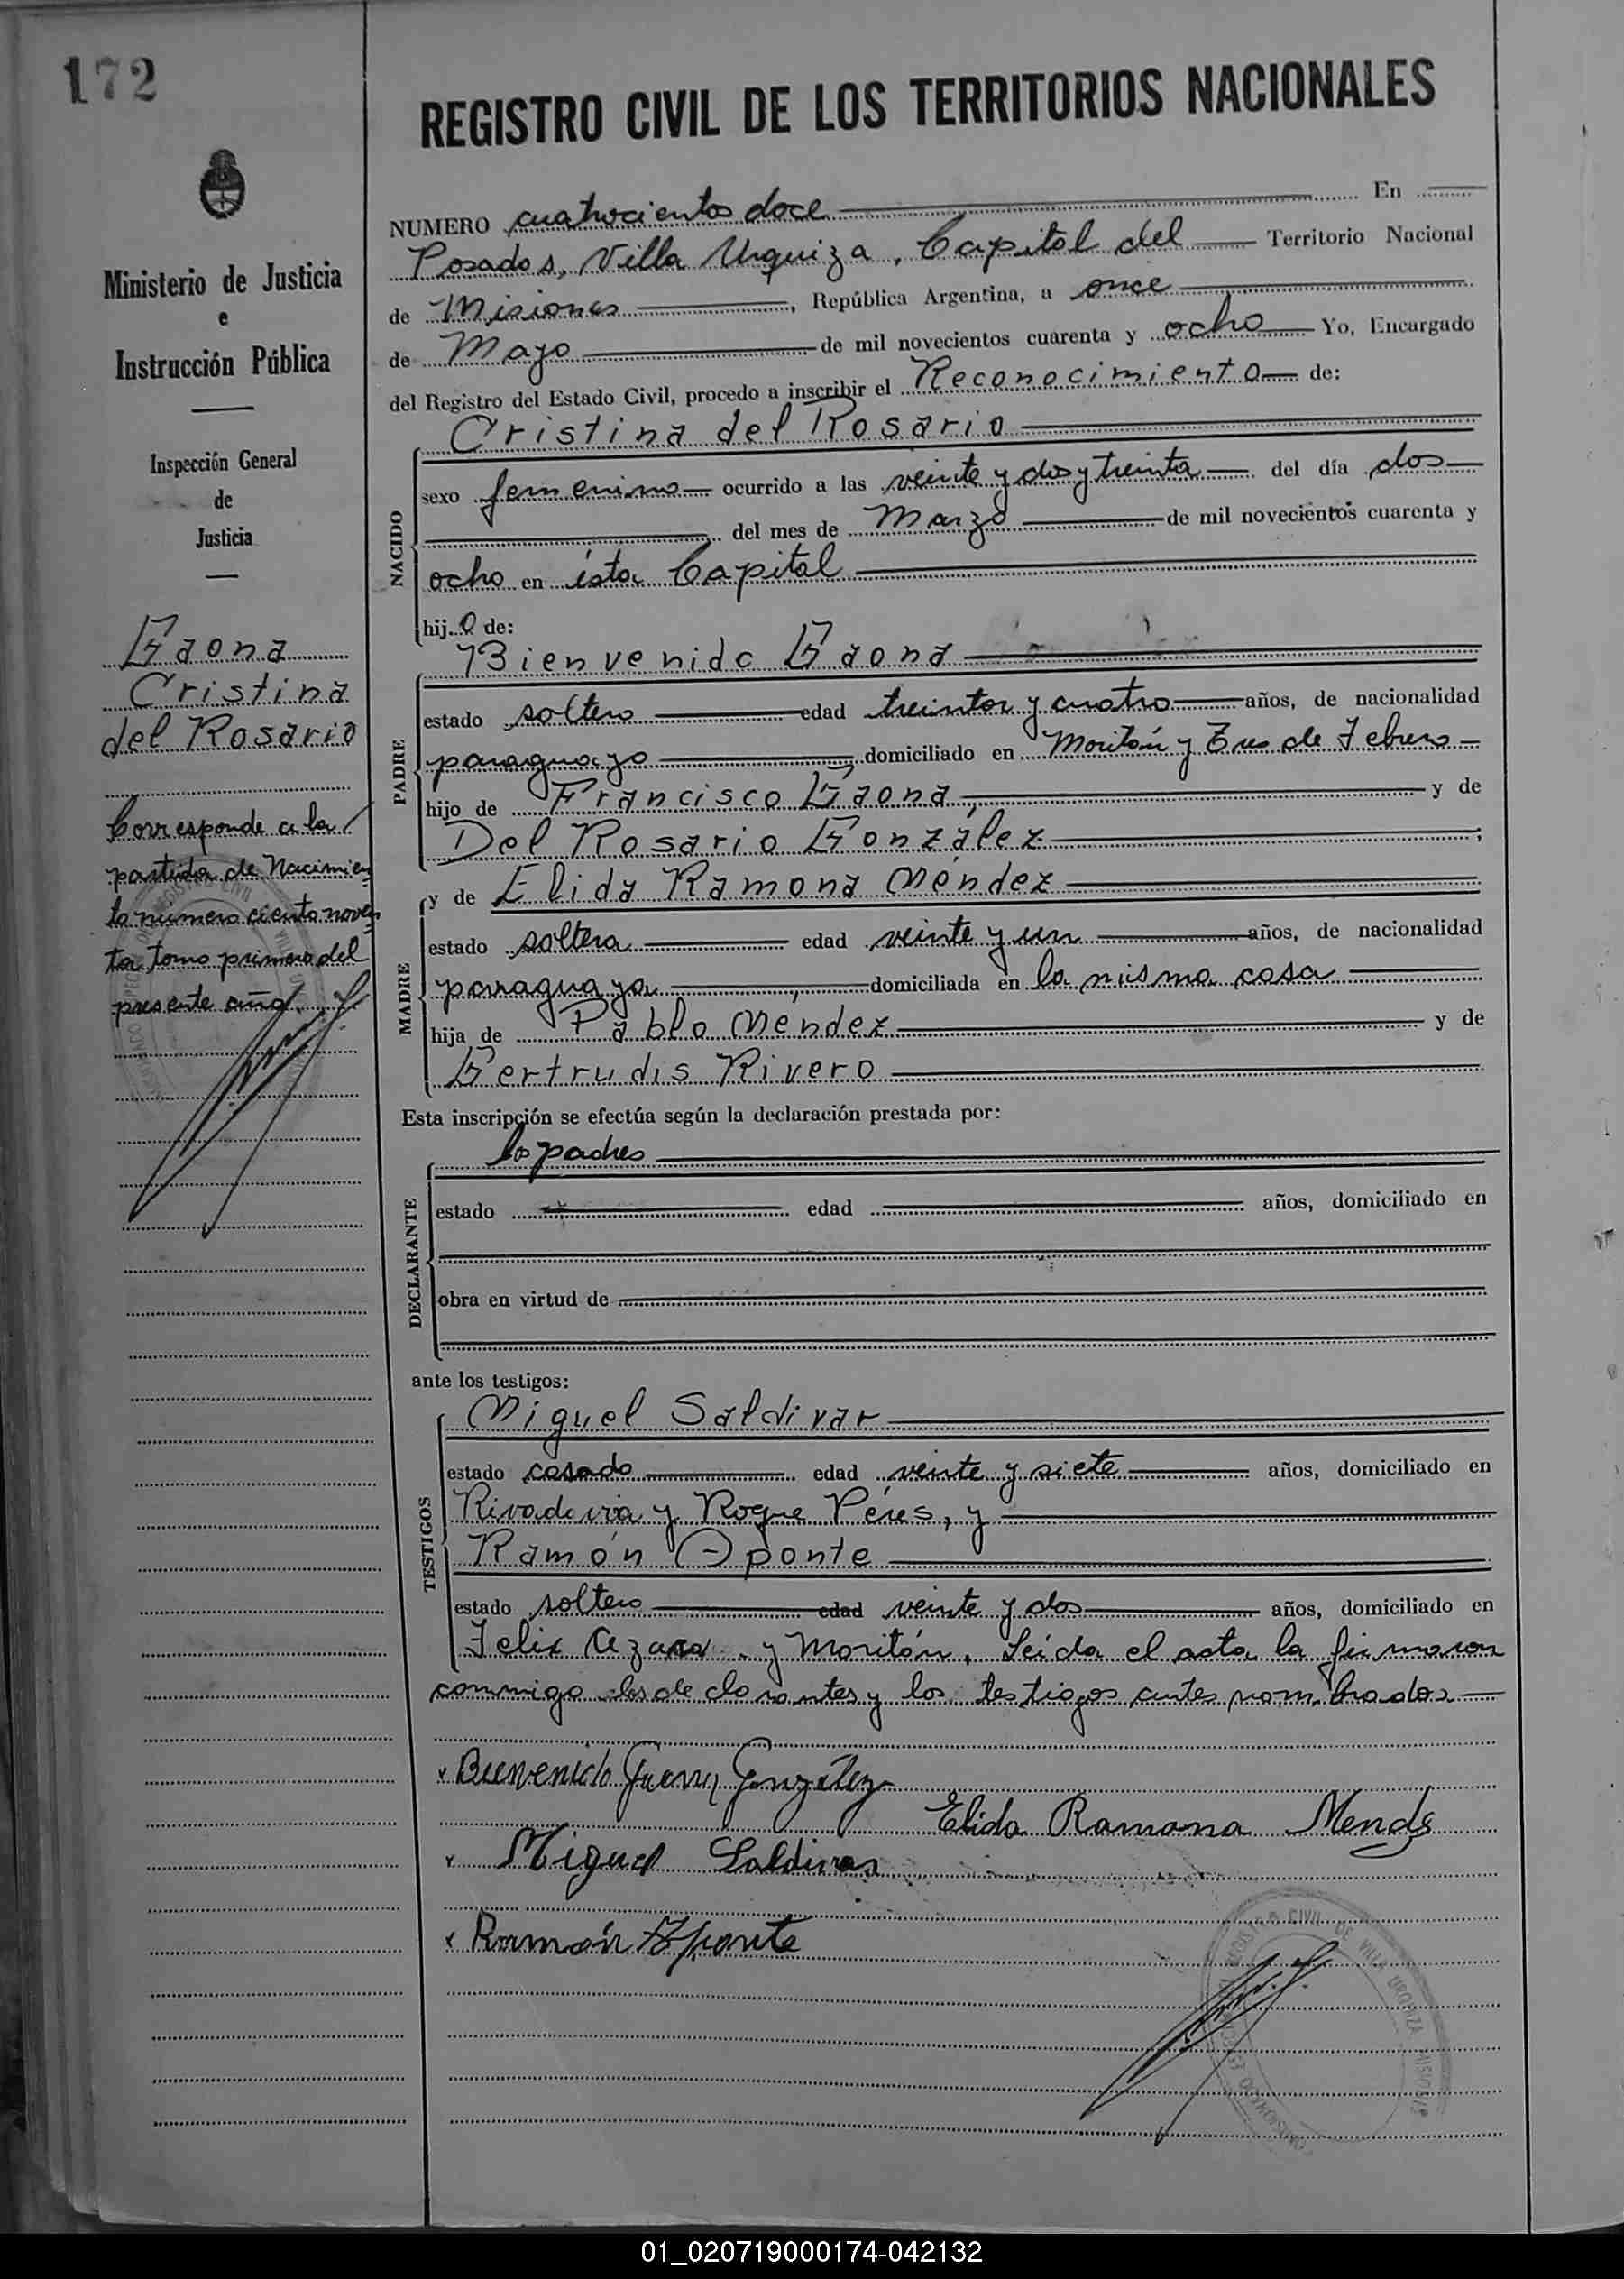 172
REGISTRO CIVIL DE LOS TERRITORIOS NACIONALES
Ministerio de Justicia
e
Instrucción Pública
Inspección General
de
Justicia
Gaona
Cristina
del Rosario
Corresponde a la
partida de Nacimien
to numero ciento noven
ta tomo primero del
presente año.
NUMERO cuatrocientos doce En
Posadas, Villa Urquiza, Capital del Territorio Nacional
de Misiones, República Argentina, a once
de Mayo de mil novecientos cuarenta y ocho Yo, Encargado
del Registro del Estado Civil, procedo a inscribir el Reconocimiento de:
Cristina del Rosario
NACIDO
sexo femenino ocurrido a las veinte y dos y treinta del día dos
del mes de Marzo de mil novecientos cuarenta y
ocho en ésta Capital
hij a de:
Bienvenido Gaona
PADRE
estado soltero edad treinta y cuatro años, de nacionalidad
paraguayo domiciliado en Moritán y Tres de Febrero
hijo de Francisco Gaona, y de
Del Rosario González ;
y de Elida Ramona Méndez
MADRE
estado soltera edad veinte y un años, de nacionalidad
paraguaya, domiciliada en la misma casa
hija de Pablo Mendez y de
Gertrudis Rivero
Esta inscripción se efectúa según la declaración prestada por:
los padres
DECLARANTE
estado edad años, domiciliado en
obra en virtud de
ante los testigos:
Miguel Saldivar
TESTIGOS
estado casado edad veinte y siete años, domiciliado en
Rivadavia y Roque Péres, y
Ramón Aponte
estado soltero edad veinte y dos años, domiciliado en
Felix Azara y Moritán. Leída el acta la firmaron
conmigo los declarantes y los testigos antes nombrados
Bienvenido Gaona González
Elida Ramona Mendez
Miguel Saldivar
Ramón Aponte
REGISTRO CIVIL DE VILLA URQUIZA MISIONES
01_020719000174-042132